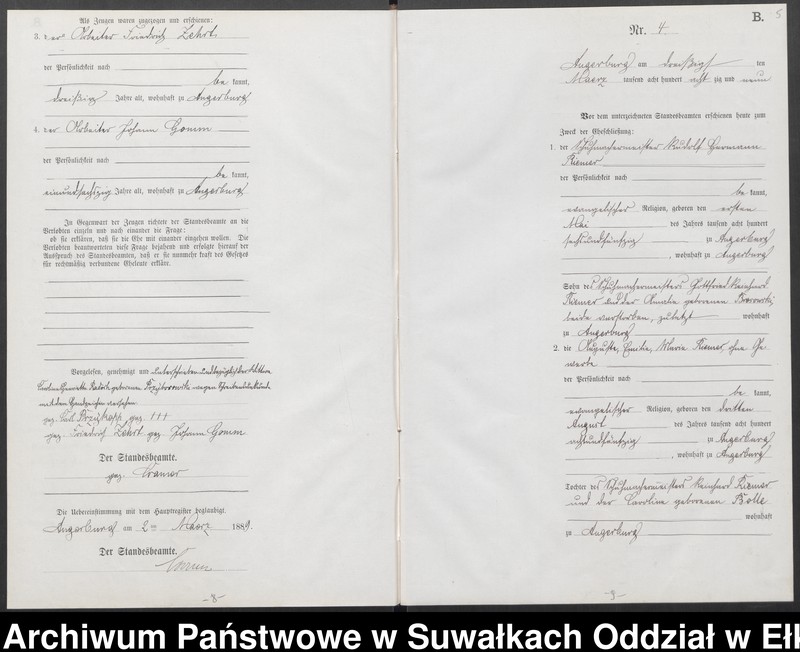 Als Zeugen waren zugezogen und erschienen:
3. der Arbeiter Friedrich Zehrt
der Persönlichkeit nach
be kannt,
dreißig Jahre alt, wohnhaft zu Angerburg
4. der Arbeiter Johann Gomm
der Persönlichkeit nach
be kannt,
einundsechszig Jahre alt, wohnhaft zu Angerburg
In Gegenwart der Zeugen richtete der Standesbeamte an die
Verlobten einzeln und nach einander die Frage:
ob sie erklären, daß sie die Ehe mit einander eingehen wollen. Die
Verlobten beantworteten diese Frage bejahend und erfolgte hierauf der
Ausspruch des Standesbeamten, daß er sie nunmehr kraft des Gesetzes
für rechtmäßig verbundene Eheleute erkläre.
Vorgelesen, genehmigt und unterschrieben und bezüglich der
geborenen wegen Schreibensunkunde
mit dem Handzeichen versehen
gez. Karl gez. †††
gez. Friedrich Zehrt gez. Johann Gomm
Der Standesbeamte.
gez. Cramer
Die Uebereinstimmung mit dem Hauptregister beglaubigt.
Angerburg am 2ten Maerz 1889.
Der Standesbeamte.
-8-
B. 5
Nr. 4
Angerburg am dreißigsten
Maerz tausend acht hundert acht zig und neun
Vor dem unterzeichneten Standesbeamten erschienen heute zum
Zweck der Eheschließung:
1. der Schuhmachermeister Rudolf Hermann
Riemer
der Persönlichkeit nach
be kannt,
evangelischer Religion, geboren den ersten
Mai des Jahres tausend acht hundert
sechsundfünfzig zu Angerburg
, wohnhaft zu Angerburg
Sohn des Schuhmachermeisters Gottfried Reinhard
Riemer und der Amalie geborenen
beide verstorben, zuletzt wohnhaft
zu Angerburg
2. die Auguste, Emilie, Maria Riemer, ohne Ge-
werbe
der Persönlichkeit nach
be kannt,
evangelischer Religion, geboren den dritten
August des Jahres tausend acht hundert
achtundfünfzig zu Angerburg
, wohnhaft zu Angerburg
Tochter des Schuhmachermeisters Reinhard Riemer
und der Caroline geborenen Bolle
wohnhaft
zu Angerburg
-9-
Archiwum Państwowe w Suwałkach Oddział w Ełk